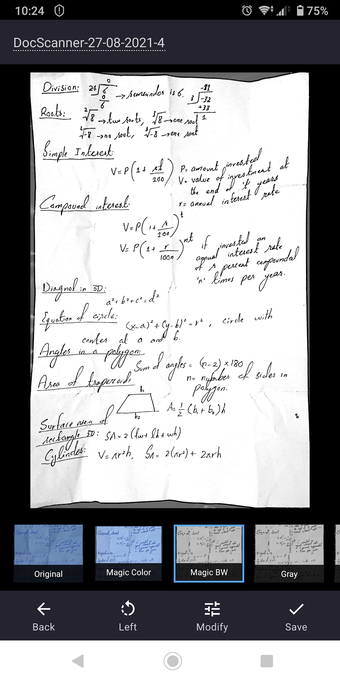 10:24
75%
DocScanner-27-08-2021-4
Division: 24√6 → remainder is 6.
Roots: ²√8 → two roots, ³√8 → one root
²√-8 → no root, ³√-8 → one root
Simple Interest:
V=P(1+ rt/100) P= amount invested
V= value of investment at
the end of 't' years
r= annual interest rate
Compound interest:
V=P(1+ r/100)^t
V= P(1+ r/100n)^nt if invested an
annual interest rate
of r percent compounded
'n' times per year.
Diagnol in 3D:
a²+b²+c²=d²
Equation of circle:
(x-a)²+(y-b)²=r², circle with
center at a and b.
Angles in a polygon:
Sum of angles = (n-2)×180
n= number of sides in
polygon.
Area of trapezoid:
b₁
b₂
A= ½(b₁+b₂)h
Surface area of
rectangle 3D: SA=2(lw+lh+wh)
Cylinder: V=πr²h, SA= 2(πr²)+2πrh
Original
Magic Color
Magic BW
Gray
Back
Left
Modify
Save